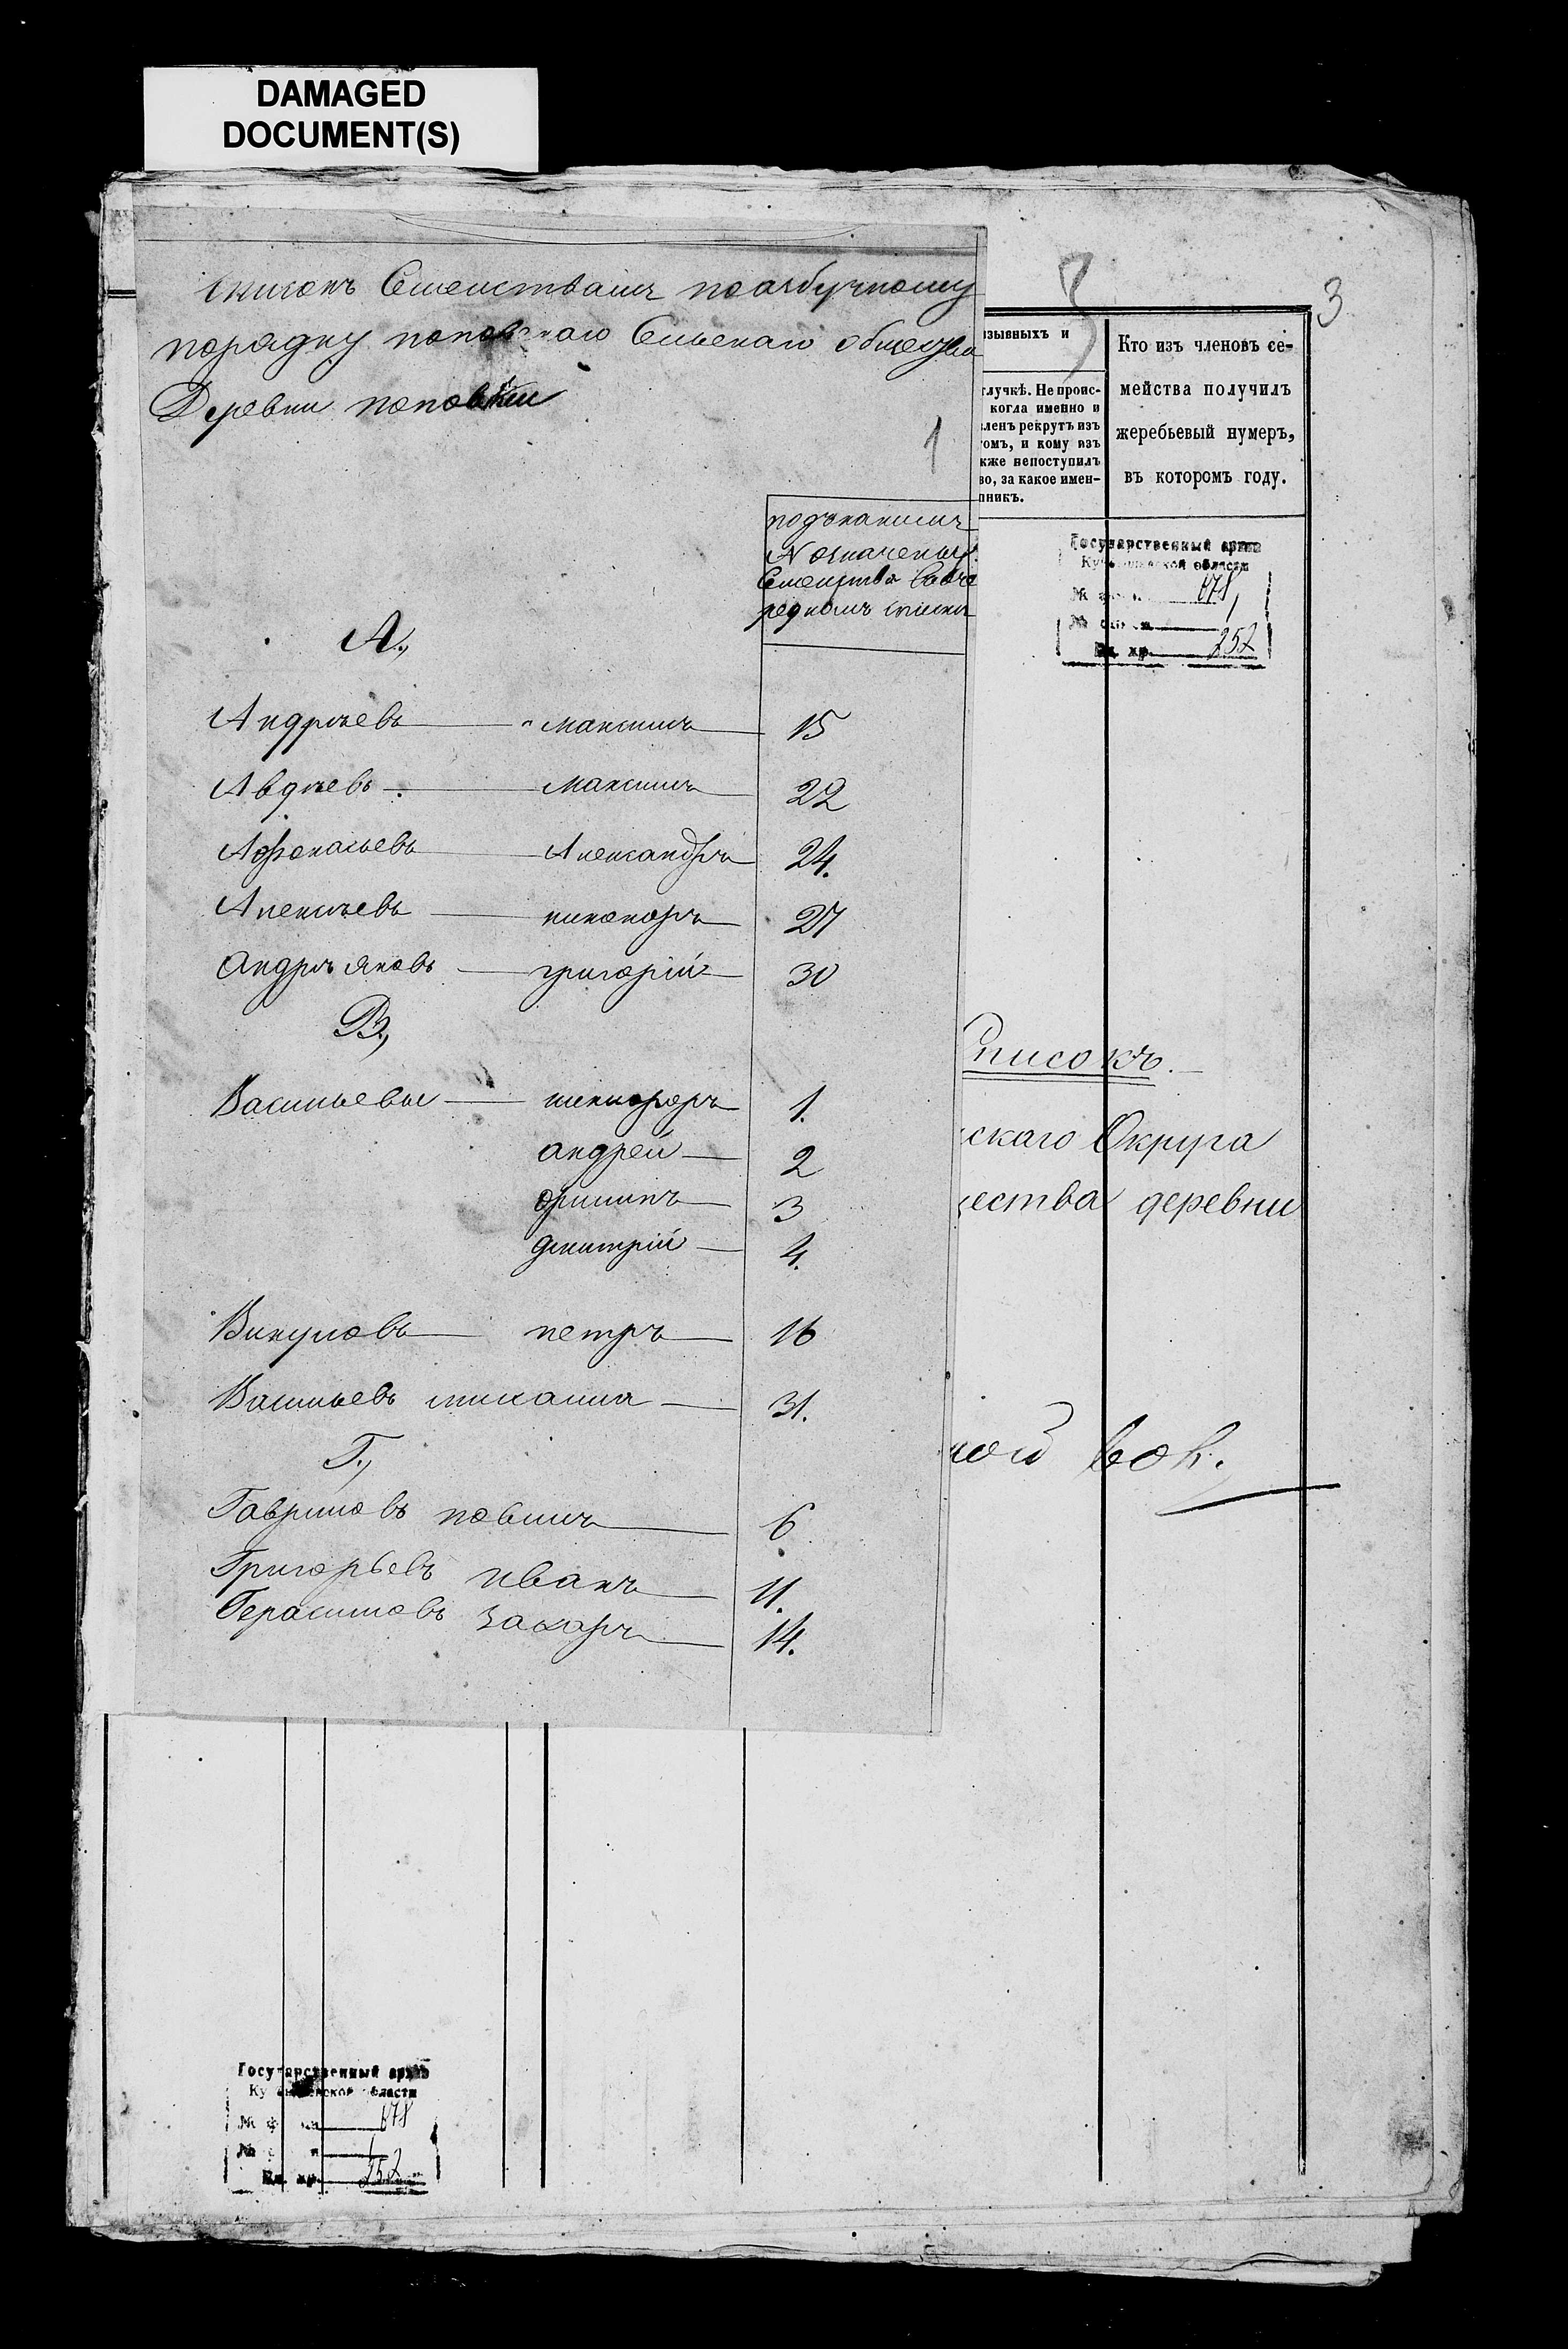 DAMAGED
DOCUMENT(S)
списокъ Семействамъ поазбучному
порядку поповскаго Сельскаго общества
Деревни поповки
1
подъкакимъ
№ означены
Семейства Вооче
редномъ списке
А.,
Андрѣевъ максимъ 15
Авдѣевъ Максимъ 22
Афонасьевъ Александръ 24.
Алексѣевъ никоноръ 27
Андрѣяновъ григорій 30
В.,
Васильевы никифоръ 1.
андрей 2
филипъ 3
дмитрій 4.
Викуловъ петръ 16
Васильевъ михаила 31.
Г.,
Гавриловъ 6.
Григорьевъ иванъ 11.
Герасимовъ Захаръ 14.
3
изывныхъ и
тлучкѣ. Не проис-
когда именно и
ленъ рекрутъ изъ
омъ, и кому изъ
кже непоступилъ
во, за какое имен-
пникъ.
Кто изъ членовъ се-
мейства получилъ
жеребьевый нумеръ,
въ которомъ году.
Государственный архив
Куйбышевской области
678
1
252
Списокъ.
скаго Округа
ества деревни
ной вол.
Государственный архив
Куйбышевской области
678
1
252